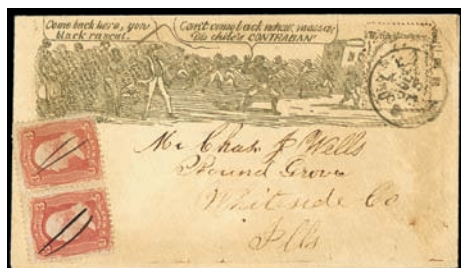 Come back here, you
black rascal.
Can't come back nohow, massa;
Dis chile's CONTRABAN'
Mr Chas J Wells
Round Grove
Whiteside Co
Ills